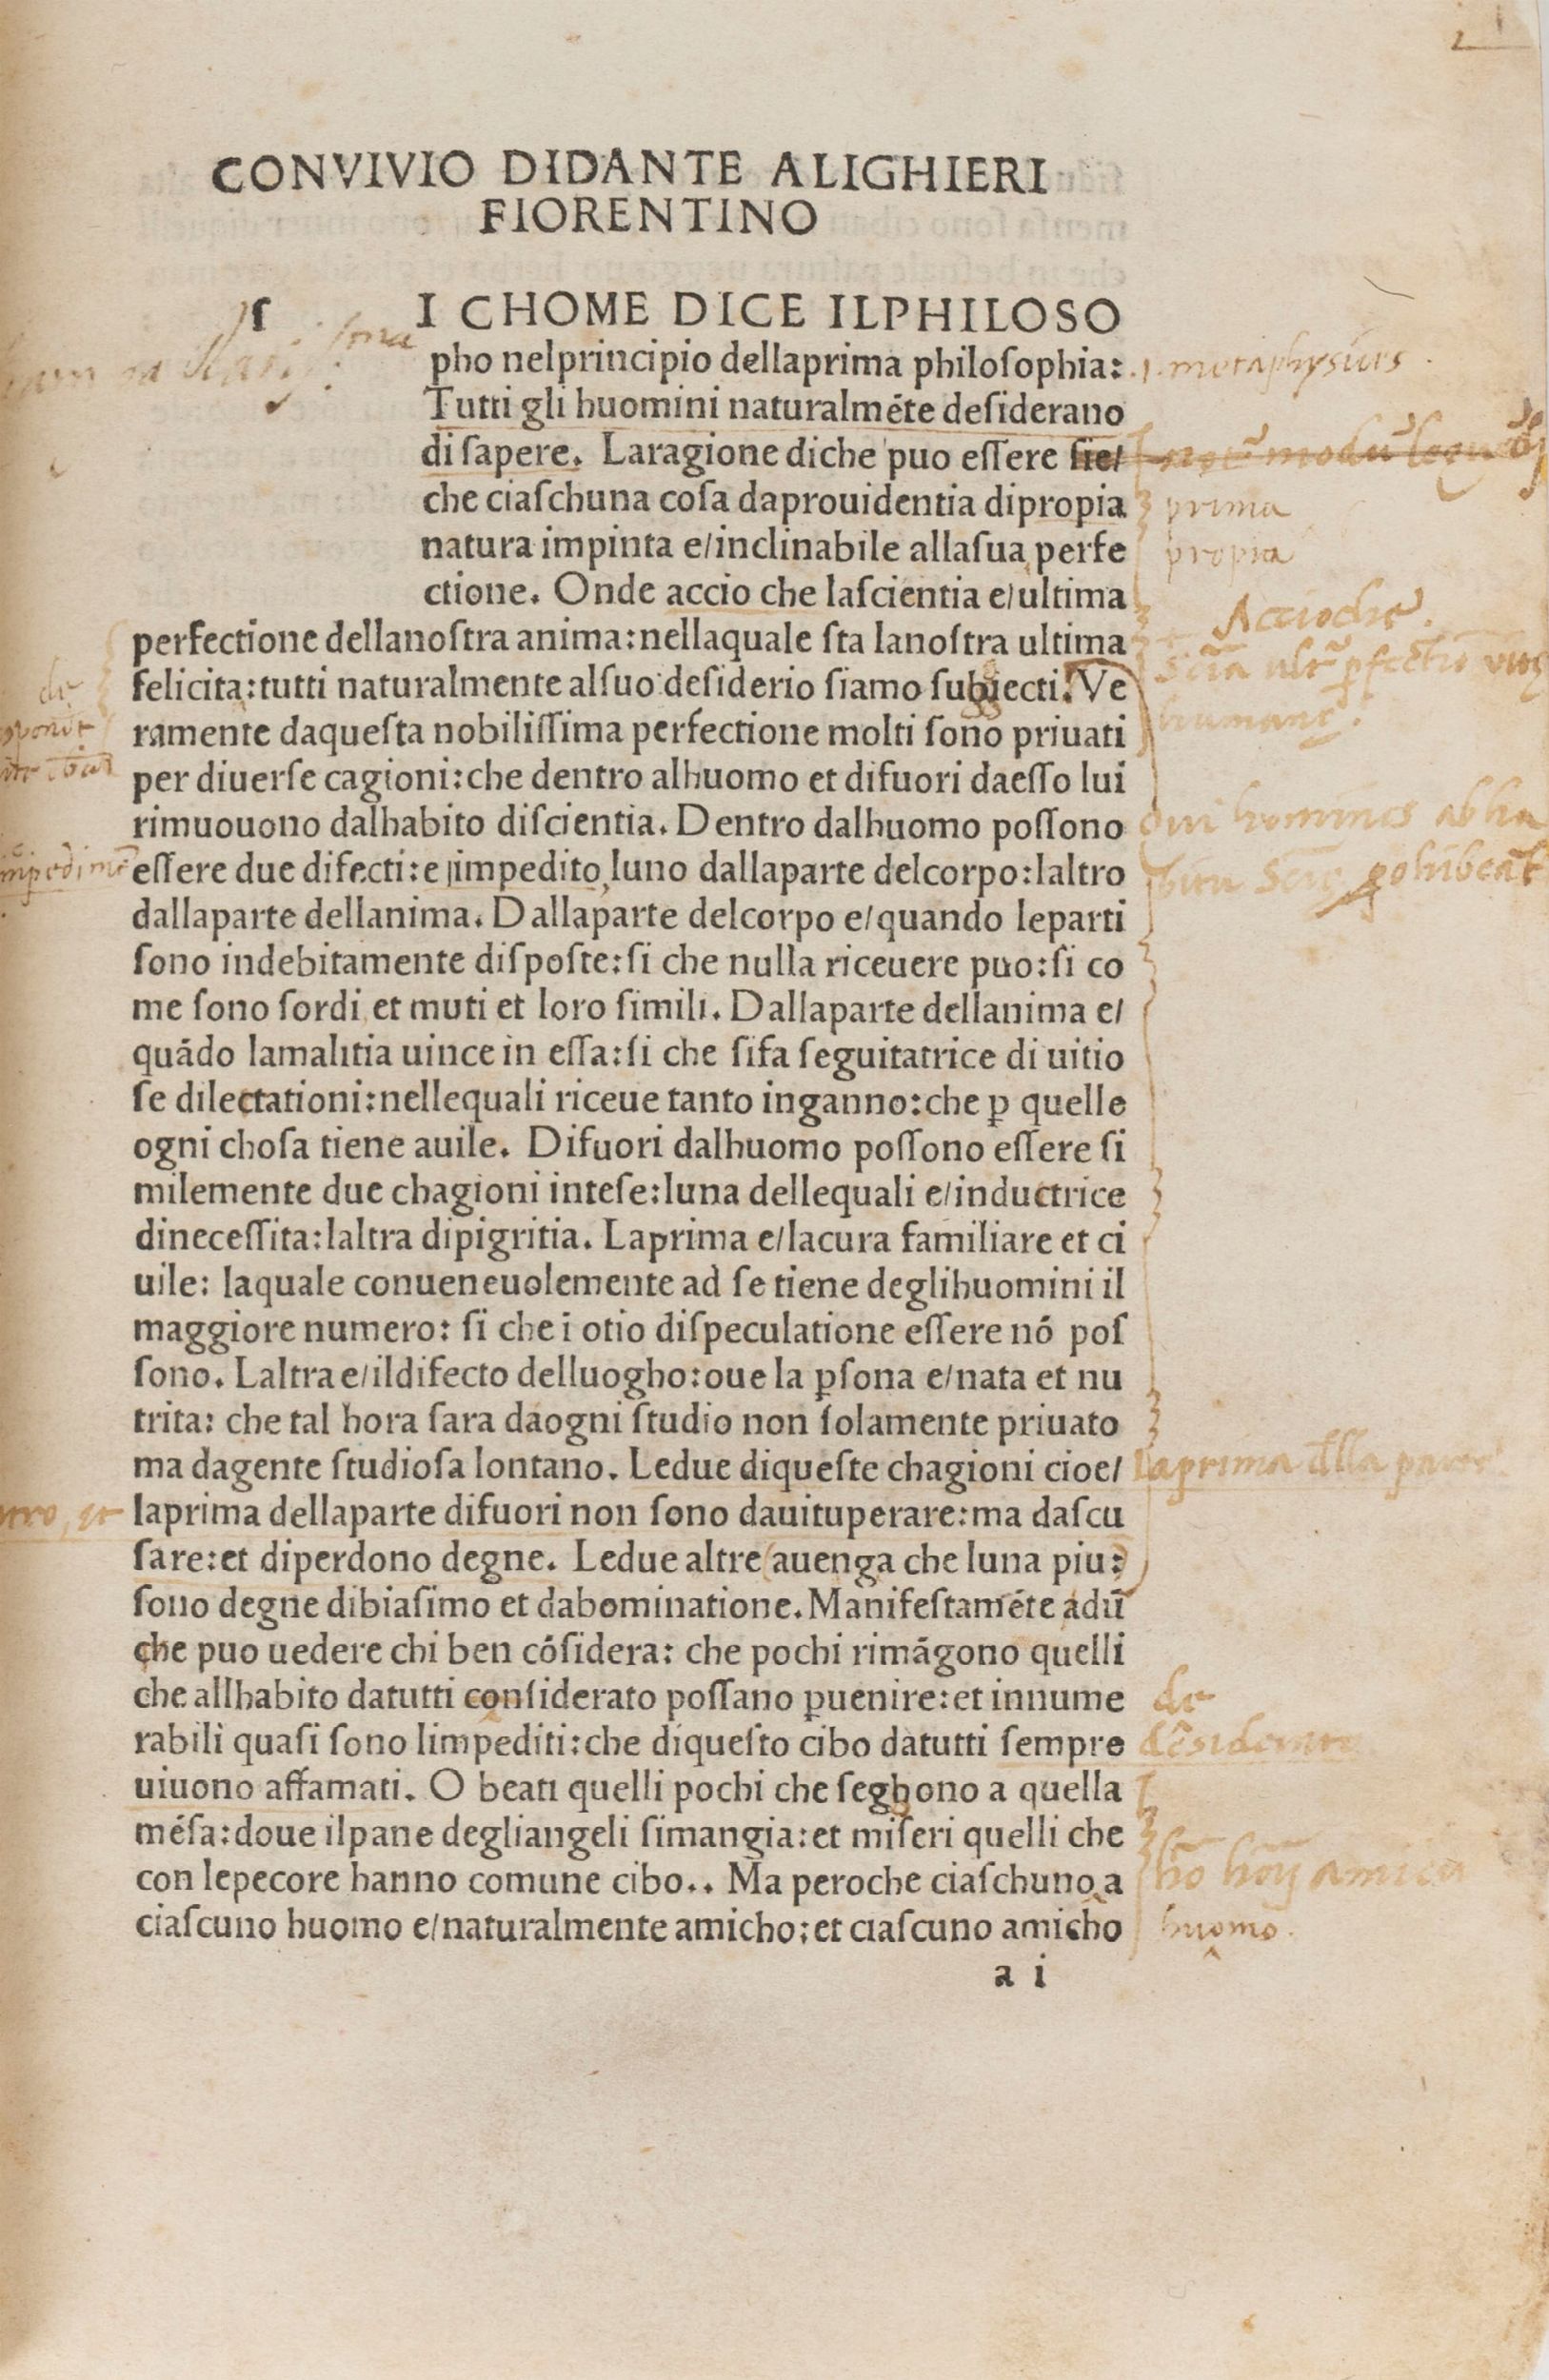 CONVIVIO DIDANTE ALIGHIERI
FIORENTINO
ſ I CHOME DICE ILPHILOSO
pho nelprincipio dellaprima philoſophia:
.1. metaphysicis
Tutti gli huomini naturalméte deſiderano
di ſapere. Laragione diche puo eſſere ſie/
che ciaſchuna coſa daprouidentia dipropia
prima
natura impinta e/inclinabile allaſua perfe
propia
ctione. Onde accio che laſcientia e/ultima
Accioche.
perfectione dellanoſtra anima:nellaquale ſta lanoſtra ultima
felicita:tutti naturalmente alſuo deſiderio ſiamo subiecti. Ve
de
ramente daqueſta nobiliſſima perfectione molti ſono priuati
humane.
per diuerſe cagioni:che dentro alhuomo et difuori daeſſo lui
rimuouono dalhabito diſcientia. Dentro dalhuomo poſſono
homines ab ha
eſſere due difecti:e impedito luno dallaparte delcorpo:laltro
dallaparte dellanima. Dallaparte delcorpo e/quando leparti
ſono indebitamente diſpoſte:ſi che nulla riceuere puo:ſi co
me ſono ſordi et muti et loro ſimili. Dallaparte dellanima e/
quādo lamalitia uince in eſſa:ſi che ſifa ſeguitatrice di uitio
ſe dilectationi:nellequali riceue tanto inganno:che ꝑ quelle
ogni choſa tiene auile. Difuori dalhuomo poſſono eſſere ſi
milemente due chagioni inteſe:luna dellequali e/inductrice
dineceſſita:laltra dipigritia. Laprima e/lacura familiare et ci
uile: laquale conueneuolemente ad ſe tiene deglihuomini il
maggiore numero: ſi che i otio diſpeculatione eſſere nó poſ
ſono. Laltra e/ildifecto delluogho:oue la ꝑſona e/nata et nu
trita: che tal hora ſara daogni ſtudio non ſolamente priuato
ma dagente ſtudioſa lontano. Ledue diqueſte chagioni cioe/
laprima dlla parte
laprima dellaparte difuori non ſono dauituperare:ma daſcu
ſare:et diperdono degne. Ledue altre (auenga che luna piu:)
ſono degne dibiaſimo et dabominatione. Manifeſtaméte adū
che puo uedere chi ben cóſidera: che pochi rimāgono quelli
che allhabito datutti conſiderato poſſano ꝑuenire:et innume
de
rabili quaſi ſono limpediti:che diqueſto cibo datutti ſempre
uiuono affamati. O beati quelli pochi che ſeghono a quella
méſa:doue ilpane degliangeli ſimangia:et miſeri quelli che
con lepecore hanno comune cibo.. Ma peroche ciaſchuno a
ciaſcuno huomo e/naturalmente amicho:et ciaſcuno amicho
huomo.
a i